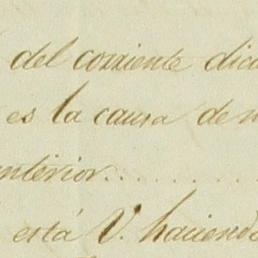 del corriente
es la causa de
anterior..........
está V. haciendo